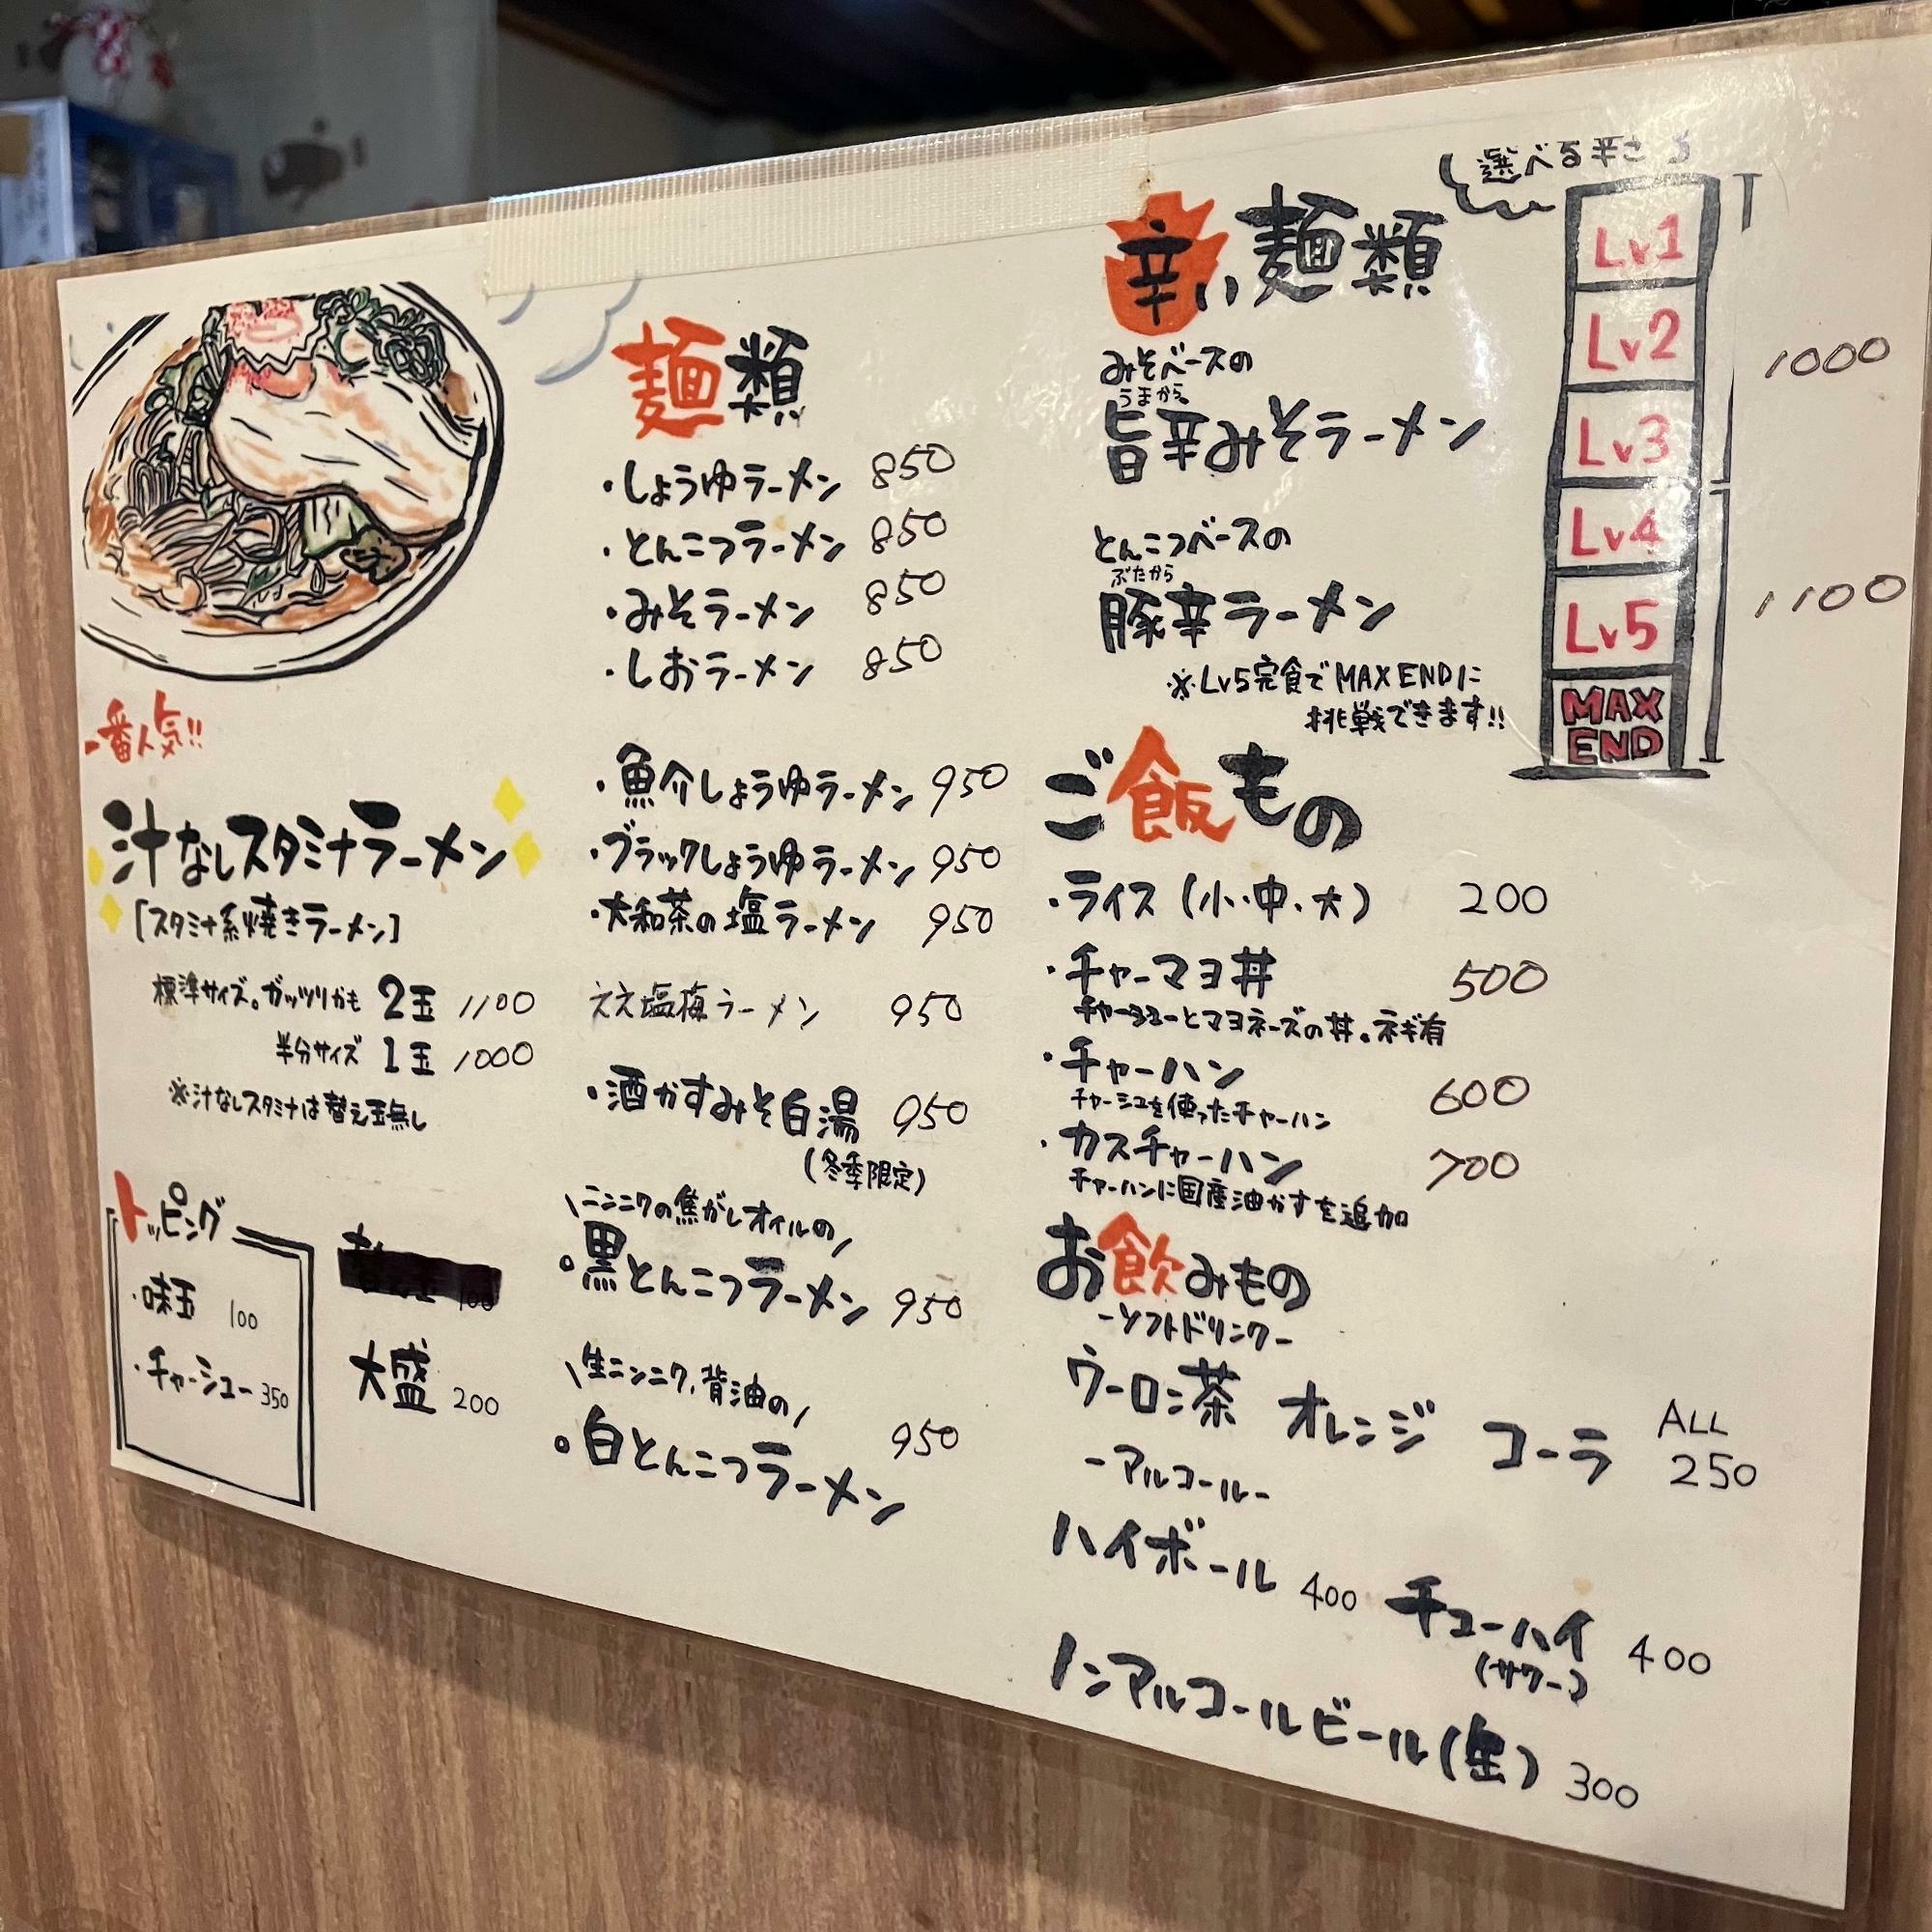 一番人気!!
汁なしスタミナラーメン
[スタミナ系焼きラーメン]
標準サイズ。ガッツリかも 2玉 1100
半分サイズ 1玉 1000
※汁なしスタミナは替え玉無し
トッピング
・味玉 100
・チャーシュー 350
大盛 200
麺類
・しょうゆラーメン 850
・とんこつラーメン 850
・みそラーメン 850
・しおラーメン 850
・魚介しょうゆラーメン 950
・ブラックしょうゆラーメン 950
・大和茶の塩ラーメン 950
ええ塩梅ラーメン 950
・酒かすみそ白湯 950
(冬季限定)
\ニンニクの焦がしオイルの/
・黒とんこつラーメン 950
\生ニンニク、背油の/
・白とんこつラーメン 950
辛い麺類
選べる辛さ
みそベースの
うまから
旨辛みそラーメン
とんこつベースの
ぶたから
豚辛ラーメン
※Lv5完食でMAX ENDに
挑戦できます!!
Lv1
Lv2
Lv3
1000
Lv4
Lv5
MAX
END
1100
ご飯もの
・ライス(小・中・大) 200
・チャーマヨ丼 500
チャーシューとマヨネーズの丼。ネギ有
・チャーハン 600
チャーシューを使ったチャーハン
・カスチャーハン 700
チャーハンに国産油かすを追加
お飲みもの
-ソフトドリンク-
ウーロン茶 オレンジ コーラ ALL 250
-アルコール-
ハイボール 400 チューハイ 400
(サワー)
ノンアルコールビール(缶) 300